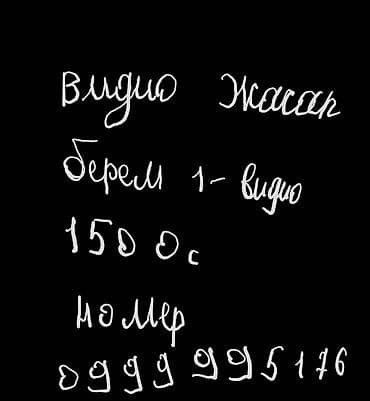 видио Жасап
берем 1- видио
1500с
номер
0999995176